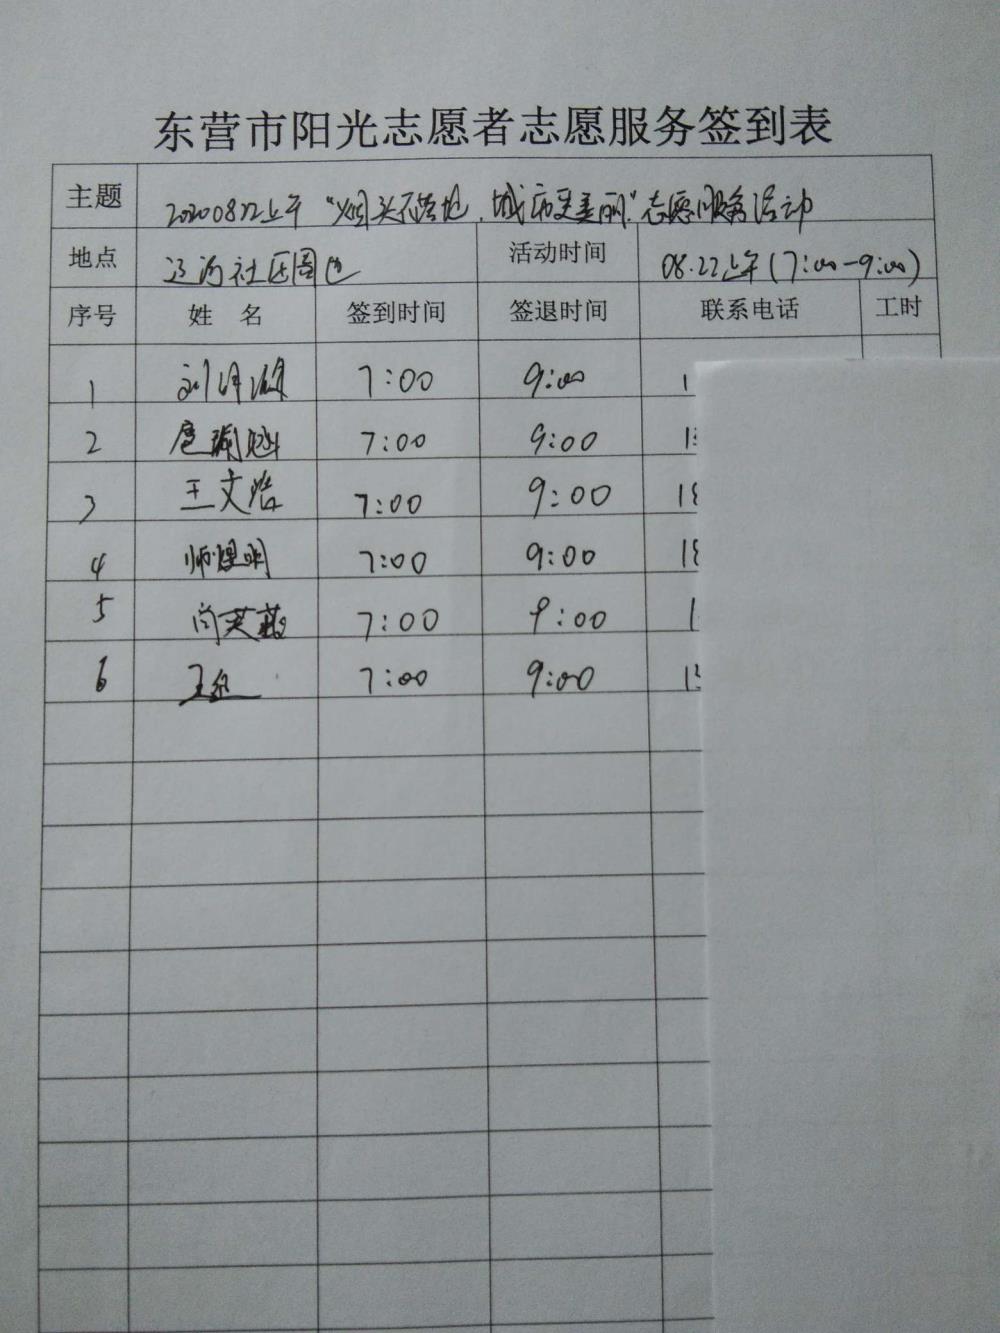 东营市阳光志愿者志愿服务签到表
主题 20200822上午"烟头不落地,城市更美丽"志愿服务活动
地点 辽河社区周边 活动时间 08.22上午(7:00-9:00)
序号 姓 名 签到时间 签退时间 联系电话 工时
1 刘 7:00 9:00 1
2 7:00 9:00 1
3 王文浩 7:00 9:00 18
4 师煜明 7:00 9:00 18
5 尚英 7:00 9:00 1
6 王 7:00 9:00 15